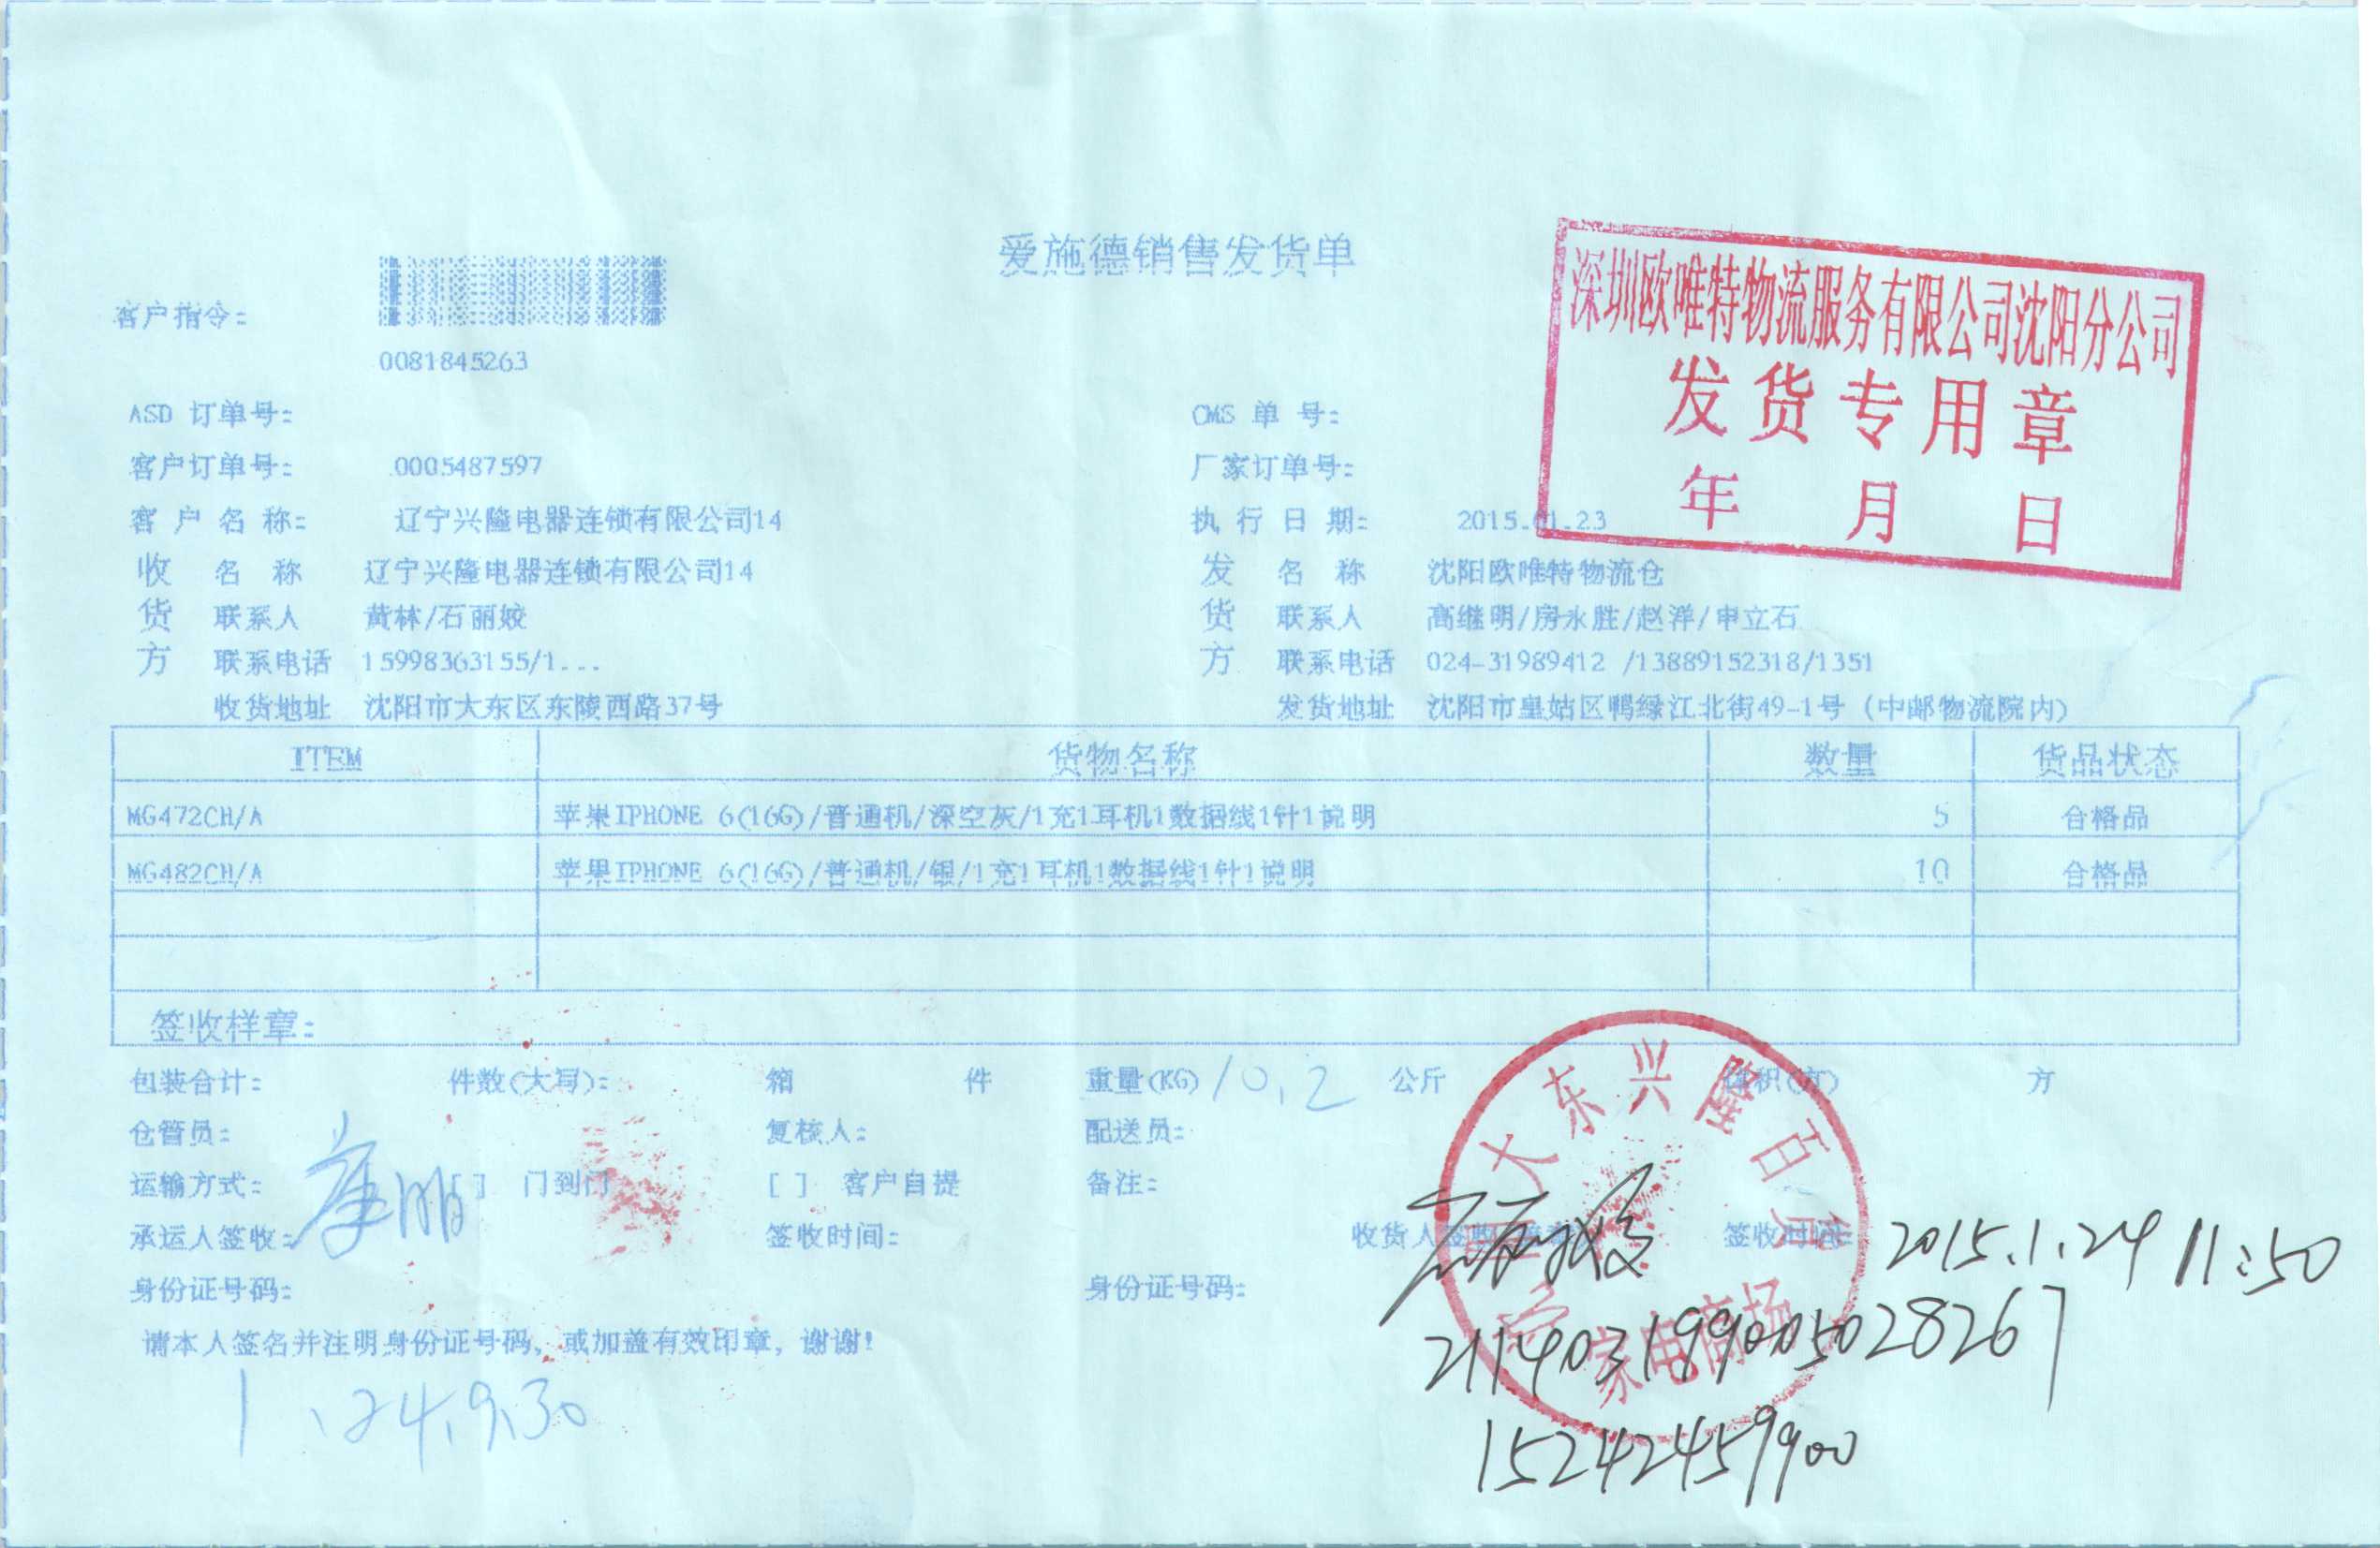 爱施德销售发货单
深圳欧唯特物流服务有限公司沈阳分公司
发货专用章
年 月 日
客户指令:
0081845263
ASD 订单号: CMS 单 号:
客户订单号: 0005487597 厂家订单号:
客 户 名 称: 辽宁兴隆电器连锁有限公司14 执 行 日 期: 2015.01.23
收 名 称 辽宁兴隆电器连锁有限公司14 发 名 称 沈阳欧唯特物流仓
货 联系人 黄林/石丽姣 货 联系人 高继明/房永胜/赵洋/申立石
方 联系电话 15998363155/1... 方 联系电话 024-31989412 /13889152318/1351
收货地址 沈阳市大东区东陵西路37号 发货地址 沈阳市皇姑区鸭绿江北街49-1号 (中邮物流院内)
ITEM 货物名称 数量 货品状态
MG472CH/A 苹果IPHONE 6(16G)/普通机/深空灰/1充1耳机1数据线1针1说明 5 合格品
MG482CH/A 苹果IPHONE 6(16G)/普通机/银/1充1耳机1数据线1针1说明 10 合格品
签收样章:
包装合计: 件数(大写): 箱 件 重量(KG) 10.2 公斤 体积(方) 方
仓管员: 复核人: 配送员:
运输方式: [ ] 门到门 [ ] 客户自提 备注:
承运人签收: 签收时间: 收货人签收 签收时间: 2015.1.24 11:50
身份证号码: 身份证号码: 211403199005028267
请本人签名并注明身份证号码, 或加盖有效印章, 谢谢!
1.24.9.30
15242459900
大东兴隆百
家电商场